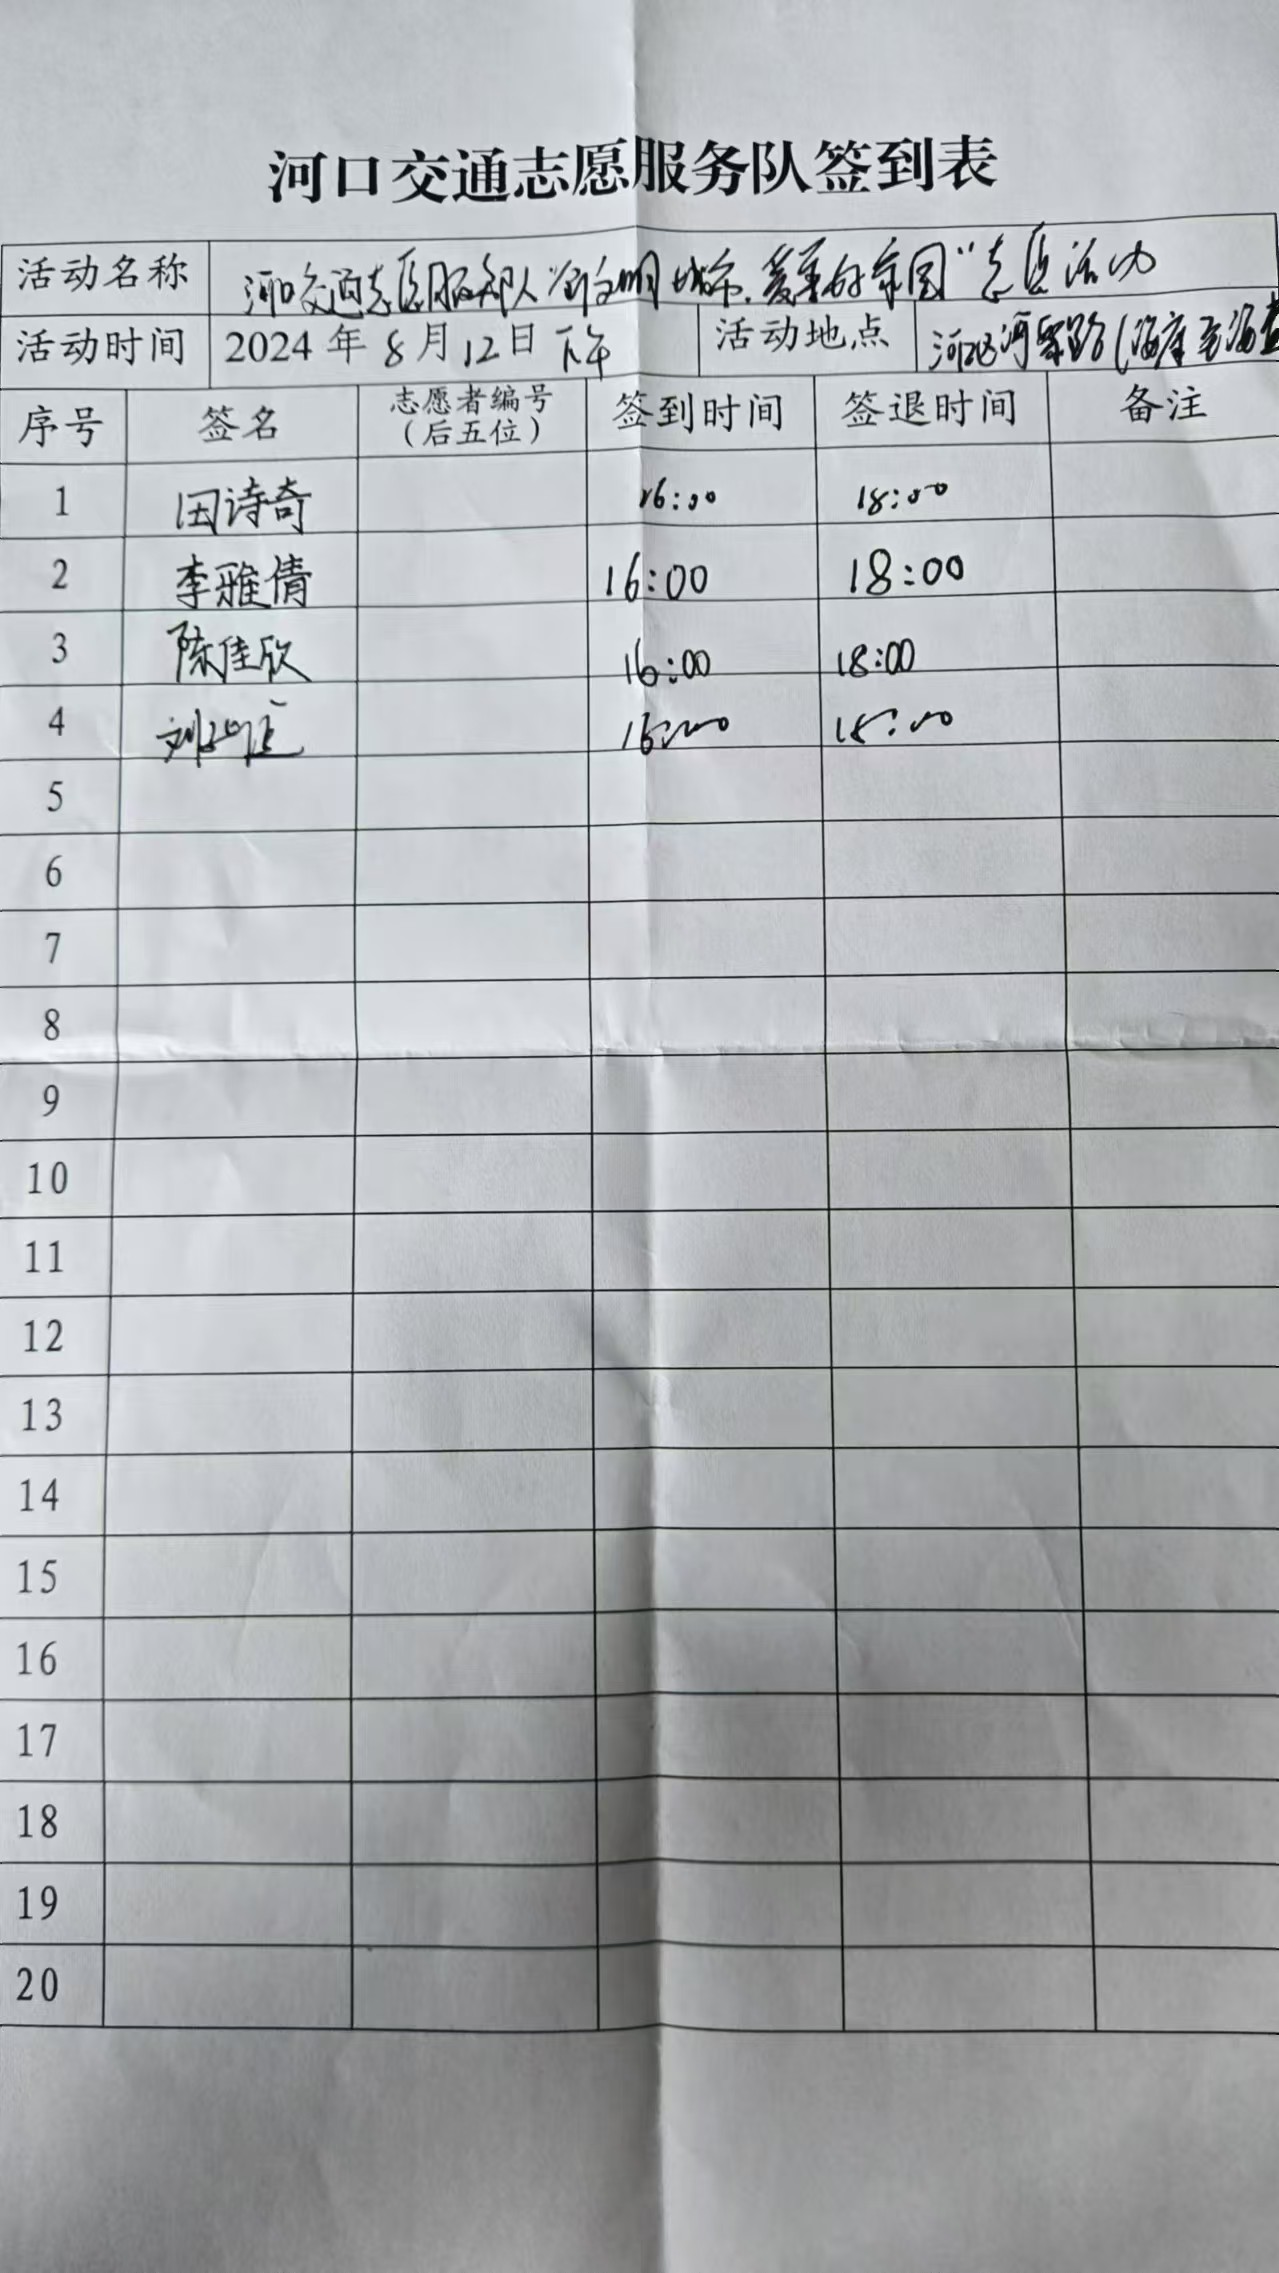 河口交通志愿服务队签到表
活动名称 河口交通志愿服务队“创文明城市，爱美好家园”志愿活动
活动时间 2024年8月12日下午 活动地点 河口区河
序号 签名 志愿者编号（后五位） 签到时间 签退时间 备注
1 田诗奇 16:00 18:00
2 李雅倩 16:00 18:00
3 陈佳欣 16:00 18:00
4 刘 16:00 18:00
5
6
7
8
9
10
11
12
13
14
15
16
17
18
19
20